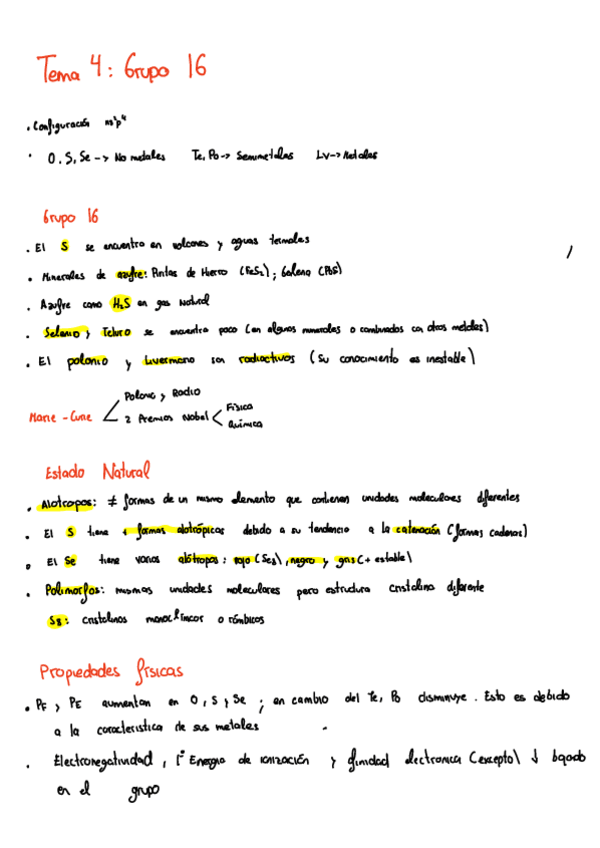 Tema 4: Grupo 16
. Configuración ns²p⁴
. O, S, Se -> No metales Te, Po -> Semimetales Lv -> Metales
Grupo 16
. El S se encuentra en volcanes y aguas termales
. Minerales de azufre: Piritas de Hierro (FeS₂); Galena (PbS)
. Azufre como H₂S en gas Natural
. Selenio y Teluro se encuentra poco (en algunos minerales o combinados con otros metales)
. El polonio y Livermorio son radioactivos (Su conocimiento es inestable)
Marie - Curie
Polonio y Radio
2 Premios Nobel
Física
Química
Estado Natural
. Alótropos: ≠ formas de un mismo elemento que contienen unidades moleculares diferentes
. El S tiene + formas alotrópicas debido a su tendencia a la catenación (formas cadenas)
. El Se tiene varios alótropos: rojo (Se₈), negro y gris (+ estable)
. Polimorfos: mismas unidades moleculares pero estructura cristalina diferente
S₈: cristalinos monoclínicos o rómbicos
Propiedades físicas
. PF y PE aumentan en O, S y Se ; en cambio del Te, Po disminuye. Esto es debido
a la característica de sus metales
. Electronegatividad, 1ª Energía de ionización y afinidad electrónica (excepto) ↓ bajando
en el grupo